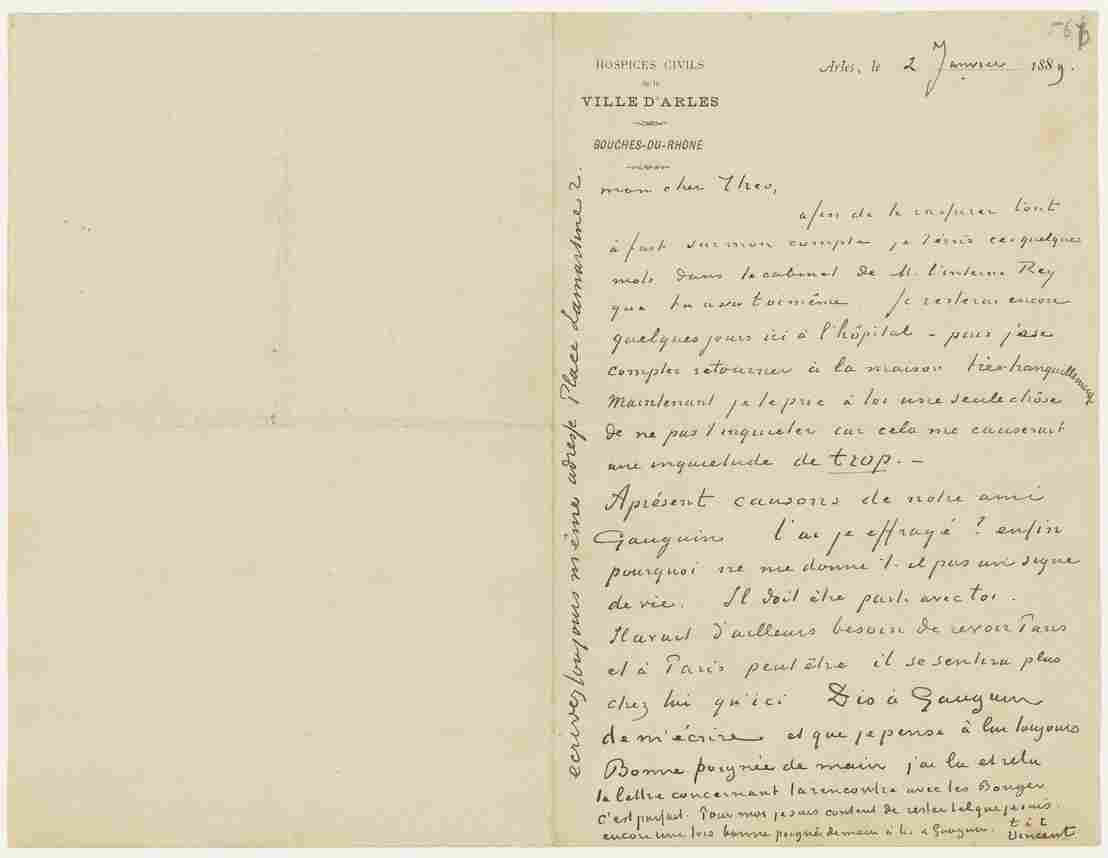 HOSPICES CIVILS
de la
VILLE D'ARLES
BOUCHES-DU-RHÔNE
Arles, le 2 Janvier 1889.
mon cher Theo,
afin de te rassurer tout
à fait sur mon compte je t'écris ces quelques
mots dans le cabinet de M. l'interne Rey
que tu as vu toi même. Je resterai encore
quelques jours ici à l'hôpital – puis j'ose
compter retourner à la maison très tranquillement
Maintenant je te prie à toi une seule chôse
de ne pas t'inquieter car cela me causerait
une inquietude de trop. –
Aprésent causons de notre ami
Gauguin l'ai je effrayé? enfin
pourquoi ne me donne t-il pas un signe
de vie. Il doit être parti avec toi.
Il avait d'ailleurs besoin de revoir Paris
et à Paris peut être il se sentira plus
chez lui qu'ici Dis à Gauguin
de m'écrire et que je pense à lui toujours
Bonne poignée de main j'ai lu et relu
ta lettre concernant la rencontre avec les Bonger
C'est parfait. Pour moi je suis content de rester tel que je suis.
encore une fois bonne poignée de main à toi à Gauguin.
t. à t.
Vincent
ecrivez toujours même adresse Place Lamartine 2.